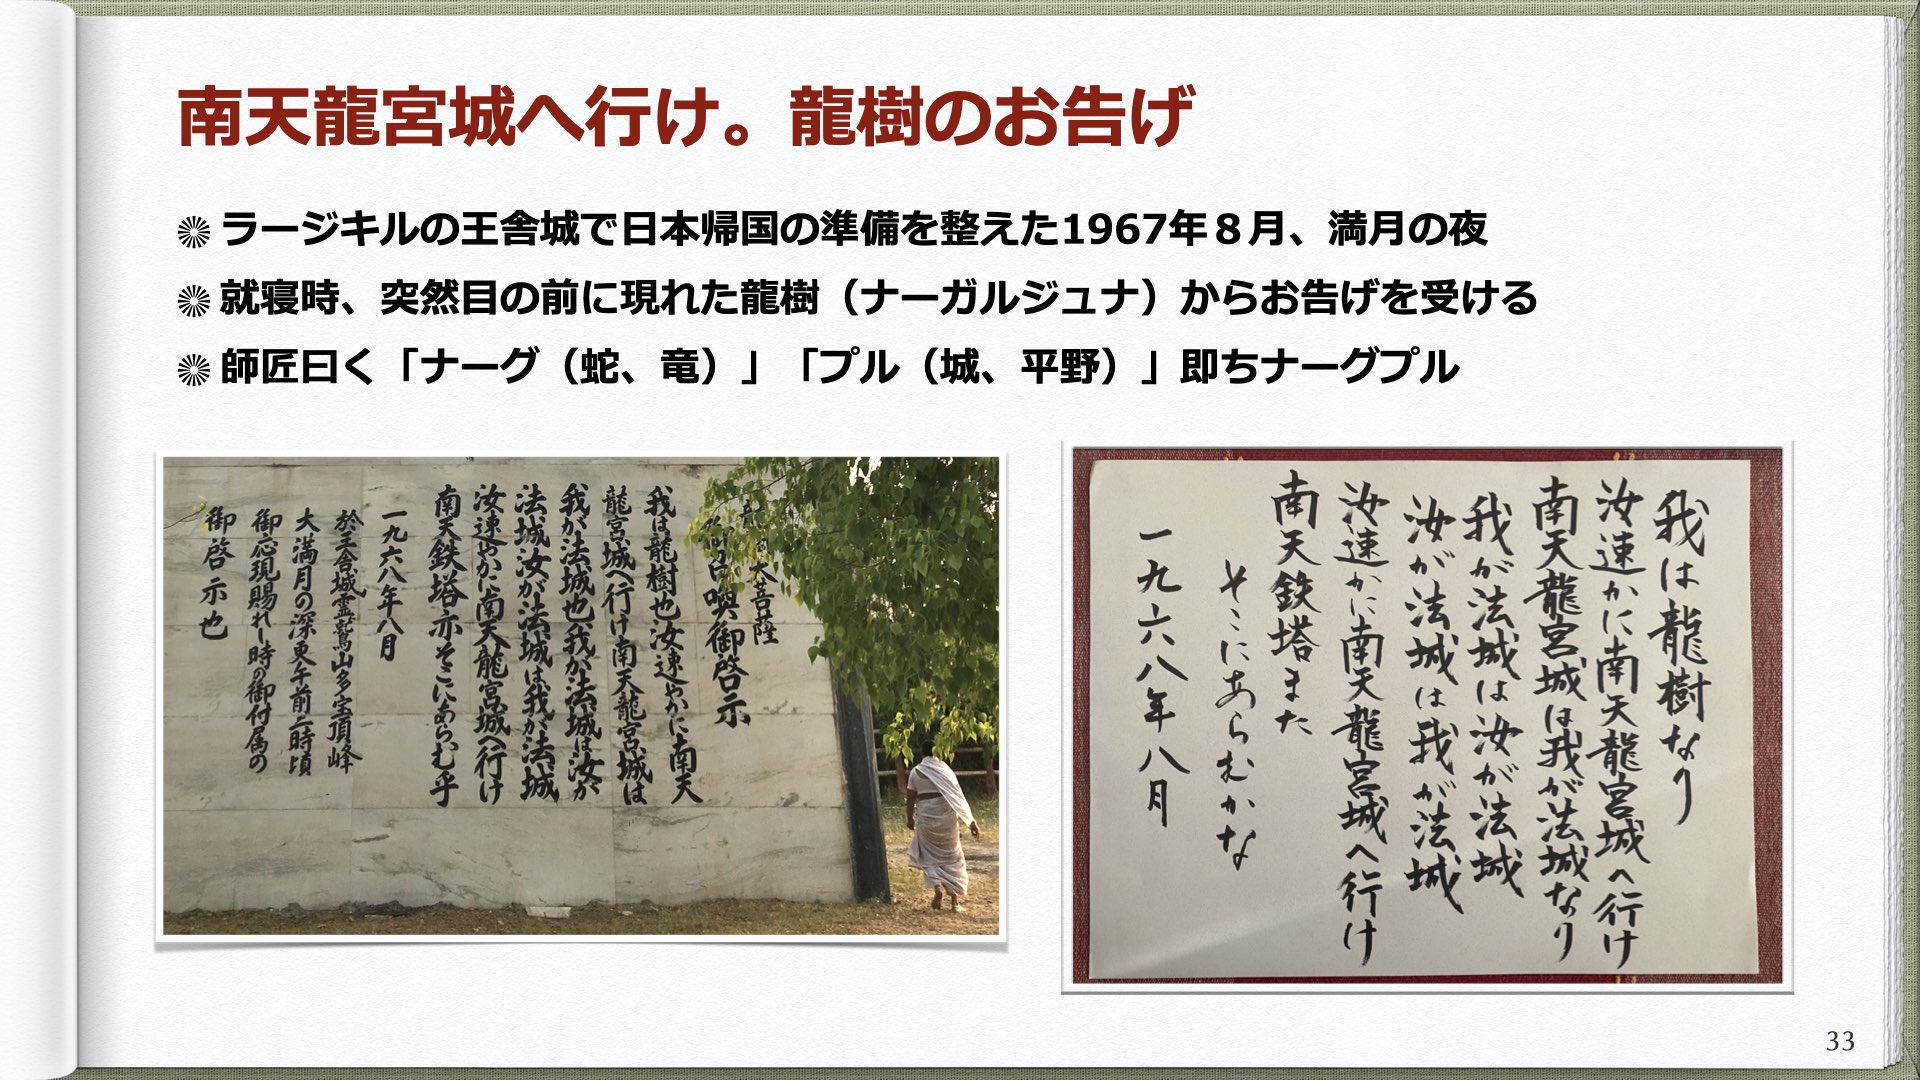 南天龍宮城へ行け。龍樹のお告げ
ラージキルの王舎城で日本帰国の準備を整えた1967年８月、満月の夜
就寝時、突然目の前に現れた龍樹（ナーガルジュナ）からお告げを受ける
師匠曰く「ナーグ（蛇、竜）」「プル（城、平野）」即ちナーグプル
大菩薩
喚御啓示
我は龍樹也汝速やかに南天
龍宮城へ行け南天龍宮城は
我が法城也我が法城は汝が
法城汝が法城は我が法城
汝速やかに南天龍宮城へ行け
南天鉄塔亦そこにあらむ乎
一九六八年八月
於王舎城霊鷲山多宝頂峰
大満月の深更午前二時頃
御応現賜れし時の御付属の
御啓示也
我は龍樹なり
汝速かに南天龍宮城へ行け
南天龍宮城は我が法城なり
我が法城は汝が法城
汝が法城は我が法城
汝速かに南天龍宮城へ行け
南天鉄塔また
そこにあらむかな
一九六八年八月
33